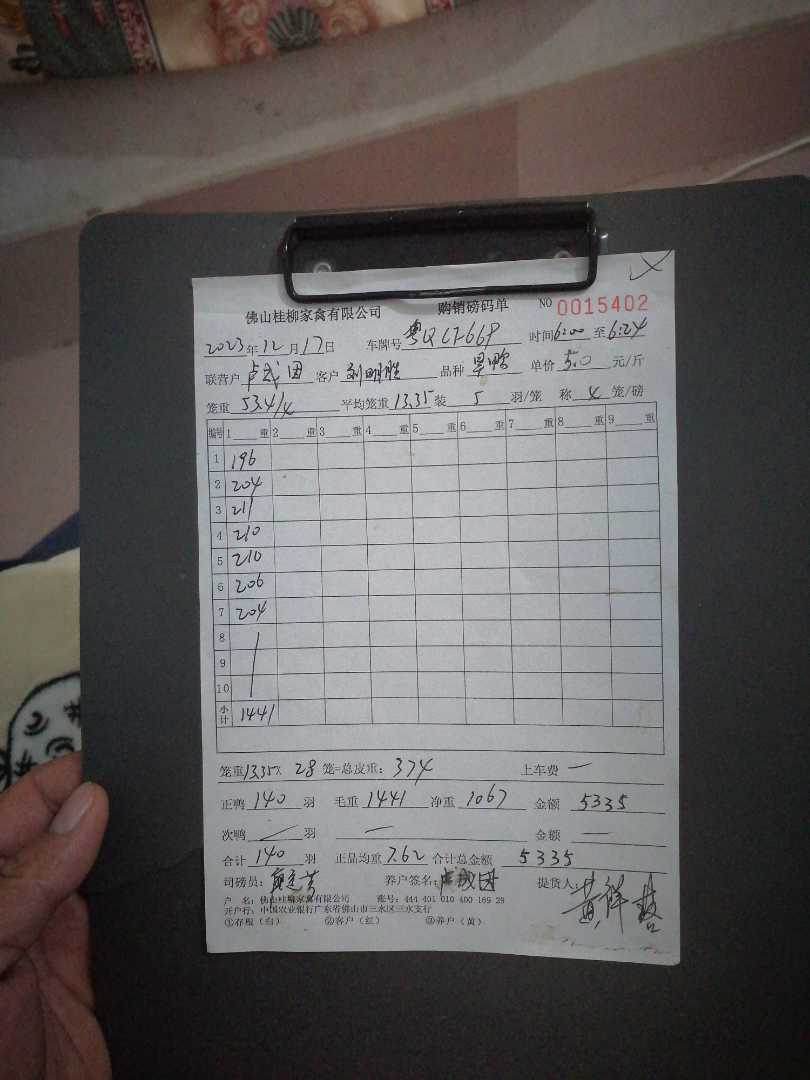 佛山桂柳家禽有限公司 购销磅码单 NO 0015402
2023年12月17日 车牌号 粤Q 时间6:00至6:24
联营户 卢成因 客户 刘明胜 品种 单价 5.0 元/斤
笼重 53.4/4 平均笼重 13.35 装 5 羽/笼 称 4 笼/磅
编号 1 重 2 重 3 重 4 重 5 重 6 重 7 重 8 重 9 重
1 196
2 204
3 211
4 210
5 210
6 206
7 204
8
9
10
小计 1441
笼重13.35× 28 笼=总皮重: 374 上车费 一
正鸭 140 羽 毛重 1441 净重 1067 金额 5335
次鸭 / 羽 一 金额 一
合计 140 羽 正品均重 7.62 合计总金额 5335
司磅员: 养户签名: 卢成因 提货人:
户 名: 佛山桂柳家禽有限公司 账号: 444 401 010 400 169 29
开户行: 中国农业银行广东省佛山市三水区三水支行
①存根（白） ②客户（红） ③养户（黄）